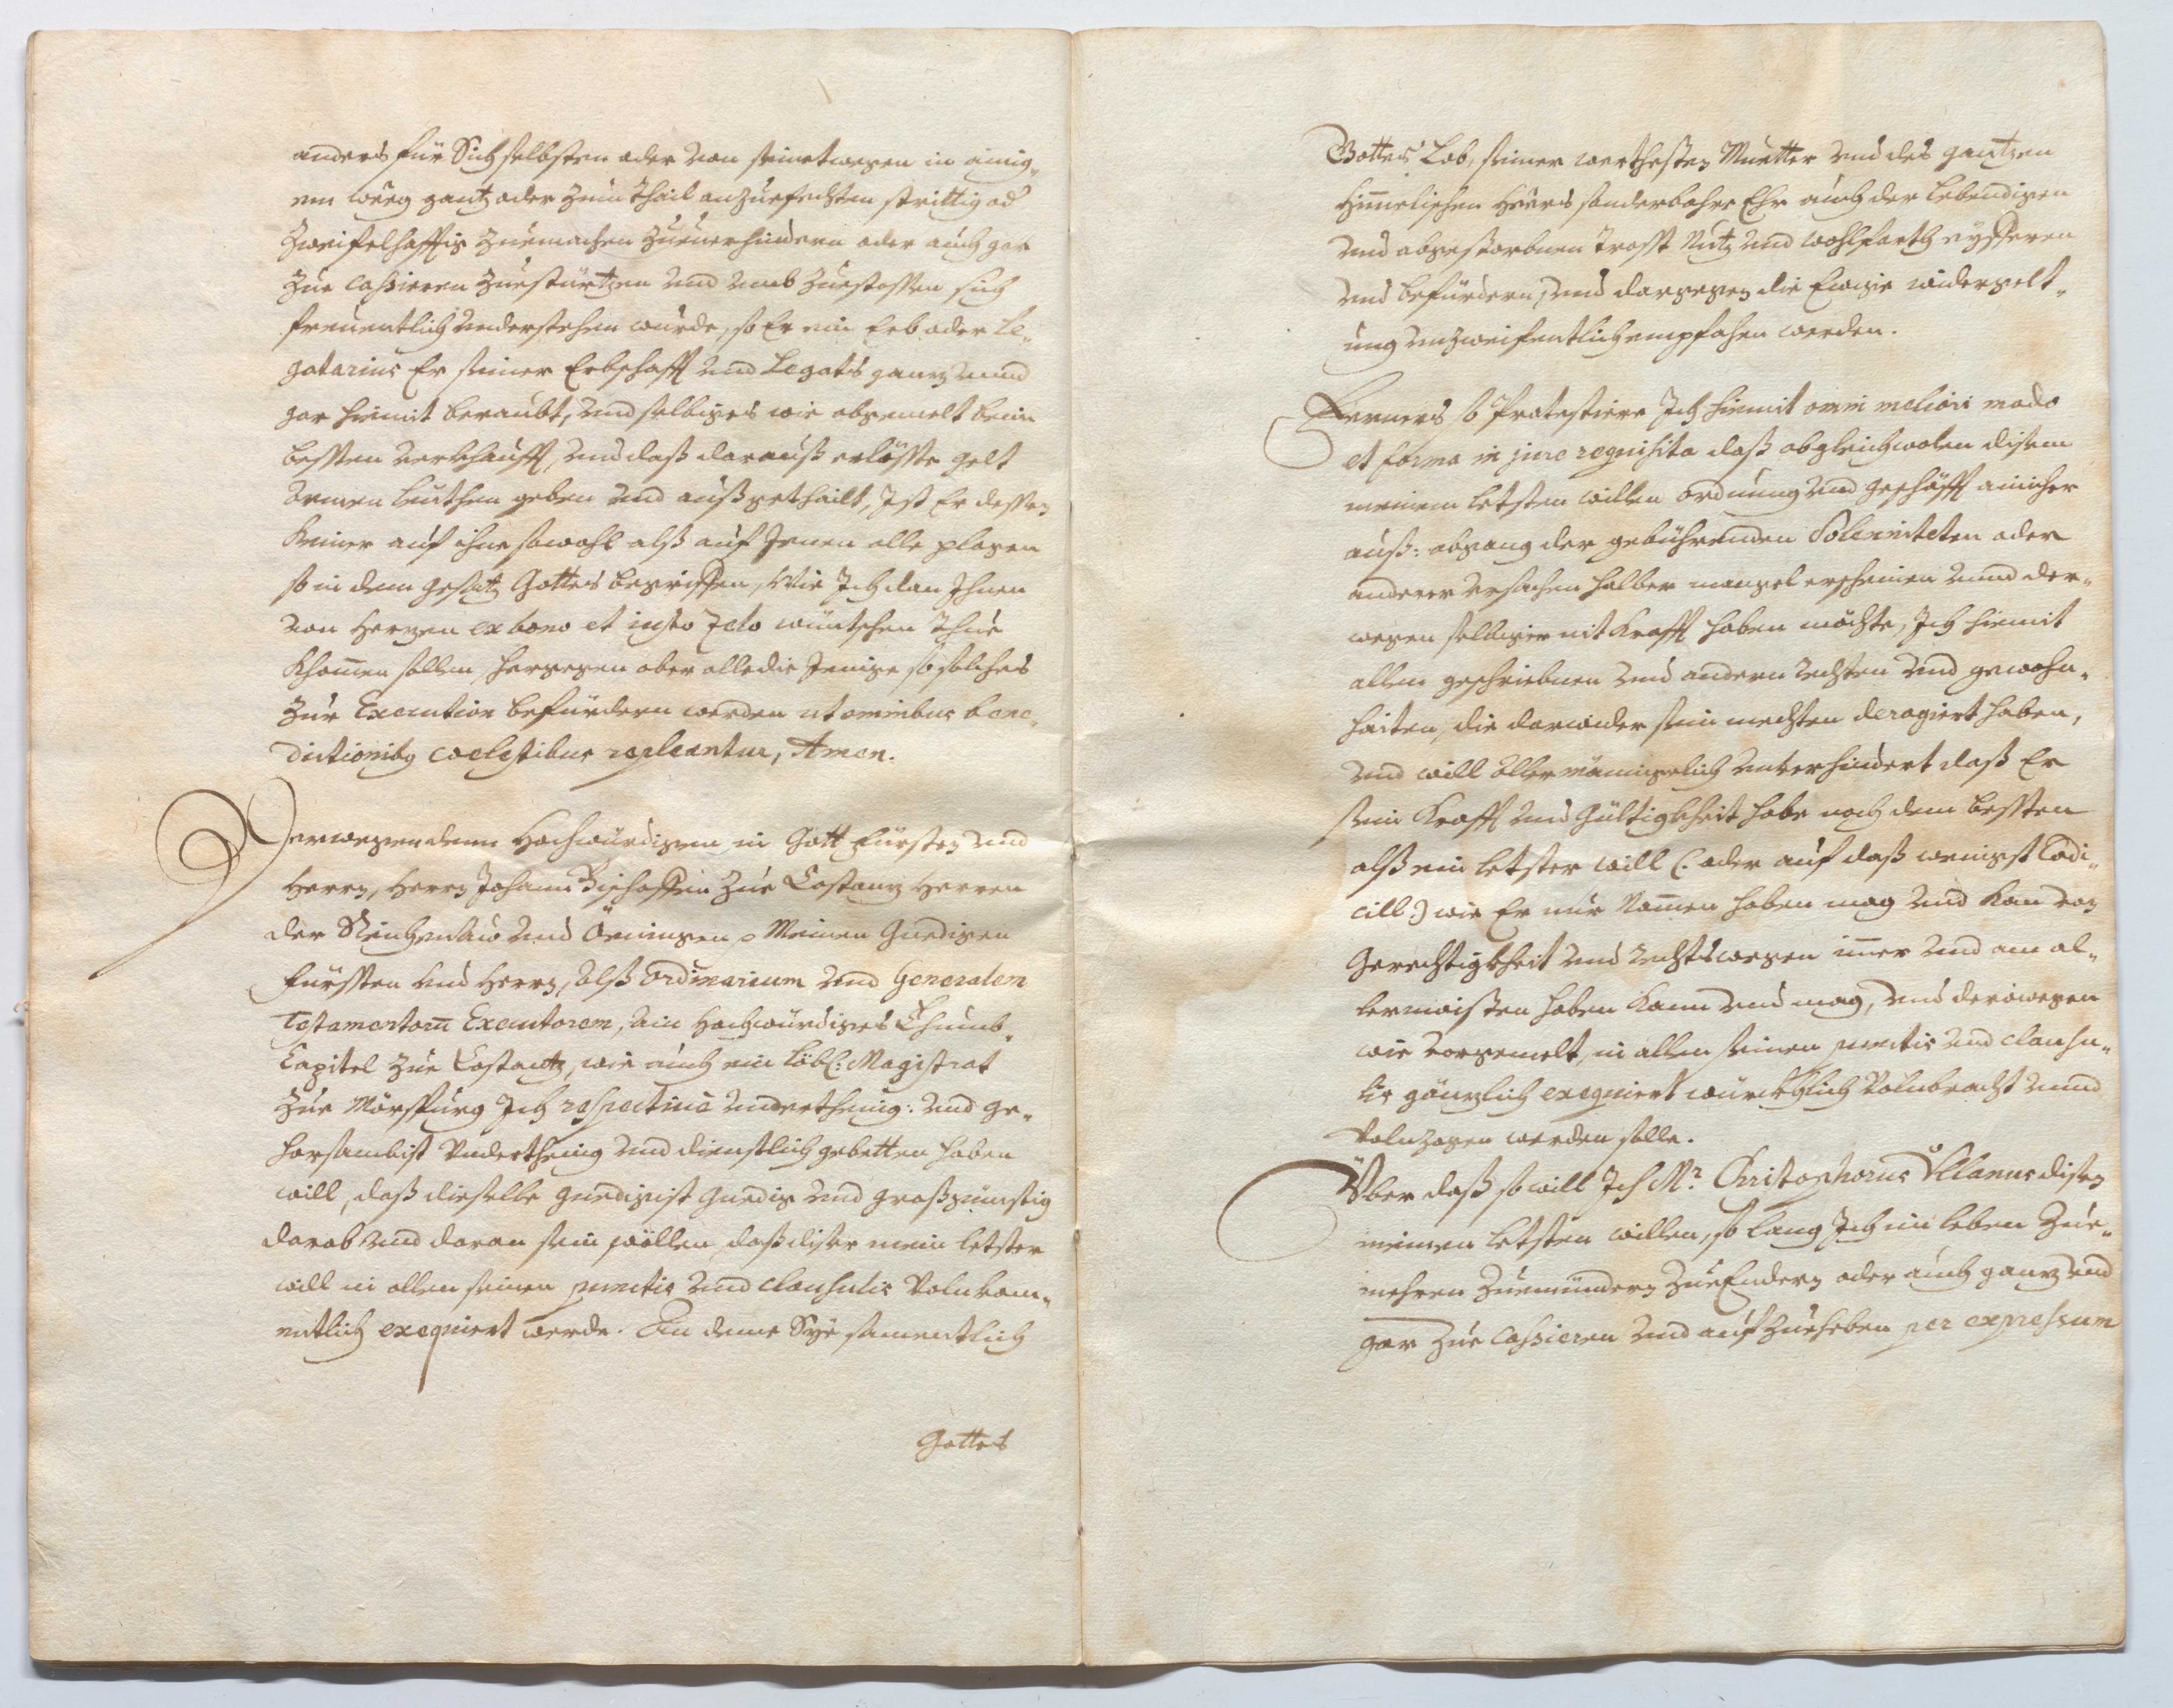 anders für Sich selbsten oder von seinetwegen in ainig„
em weeg gantz oder zum thail anzuefechten strittig od
zweifelhafftig zuemachen zueuerhindern oder auch gar
zue cassieren zuestürtzen und umb zuestossen sich
freuentlich understehen wurde, so Er ein Erb oder Le„
gatarius Er seiner Erbschafft und Legats gantz unnd
gar hiemit beraubt, und selbiges wie obgemelt beim
besten verkhaufft, und daß darauß erlößte gelt
armen leuthen geben und außgethailt, Ist Er dessen
keiner auf ihne sowohl alß auf Jenen alle plagen
so in dem gesatz Gottes begriffen, Wie Ich dan Ihnen
von hertzen ex bono et iusto Zelo wüntschen thue
khomen sollen, hergegen aber alle die Jenige so solches
zur Execution befürdern werden ut omnibus bene„
dictionibus coelestibus repleantur, Amen.
Derwegen denn Hochwürdigen in Gott Fürsten und
Herrn, Herrn Johann Bischoffen zue Costantz Herren
der Reichenaw und Öeningen p Meinen Gnedigen
fürsten und Herrn, alß ordinarium und Generalem
Testamentorum Executorem, ain Hochwürdiges Thumb„
Capitel zue Costantz, wie auch ein löbl: Magistrat
zue Mörspurg Ich respective underthenig: und ge„
horsambist underthenig und dienstlich gebetten haben
will, daß dieselbe gnedigist gnedig und großgünstig
darob und daran sein wöllen, daß diser mein letster
will in allen seinen punctis und clausulis volnkom„
entlich exequiert werde. An deme Sye samentlich
Gottes
Gottes Lob, seiner werthesten Muetter und des gantzen
himelischen Heers sonderbahre Ehr auch der lebendigen
und abgestorbnen Trost Nutz und wohlfarth eyfferen
und befürdern, und dargegen die Ewige widergelt„
ung unzweifentlich empfahen werden.
Ferners so Protestiere Ich hiemit omni meliori modo
et forma in jure requisita daß obgleichwolen disem
meinem letsten willen ordnung und geschäfft ainicher
auß: abgang der gebührenden Solenniteten oder
anderer ursachen halber mangel erscheinen unnd der„
wegen selbiger nit krafft haben möchte, Ich hiemit
allen geschriebnen und andern rechten und gewohn„
haiten, die darwider sein mechten derogiert haben,
und will aller mäniglich unverhindert daß Er
sein krafft und gültigkheit habe nach dem besten
alß ein letster will (: oder auf daß wenigst Codi„
cill :) wie Er nur Namen haben mag und kan von
gerechtigkheit und rechtswegen imer und am al„
lermaisten haben kann und mag, und derowegen
wie vorgemelt, in allen seinen punctis und clausu„
lis gäntzlich exequiert würckhlich volnbracht unnd
volnzogen werden solle.
Über daß so will Ich Mr. Christophorus Ullanus disen
meinen letsten willen, so lang Ich im leben zue„
mehren zuemündern zue Endern oder auch gantz und
gar zue Cassieren und aufzueheben per expressum